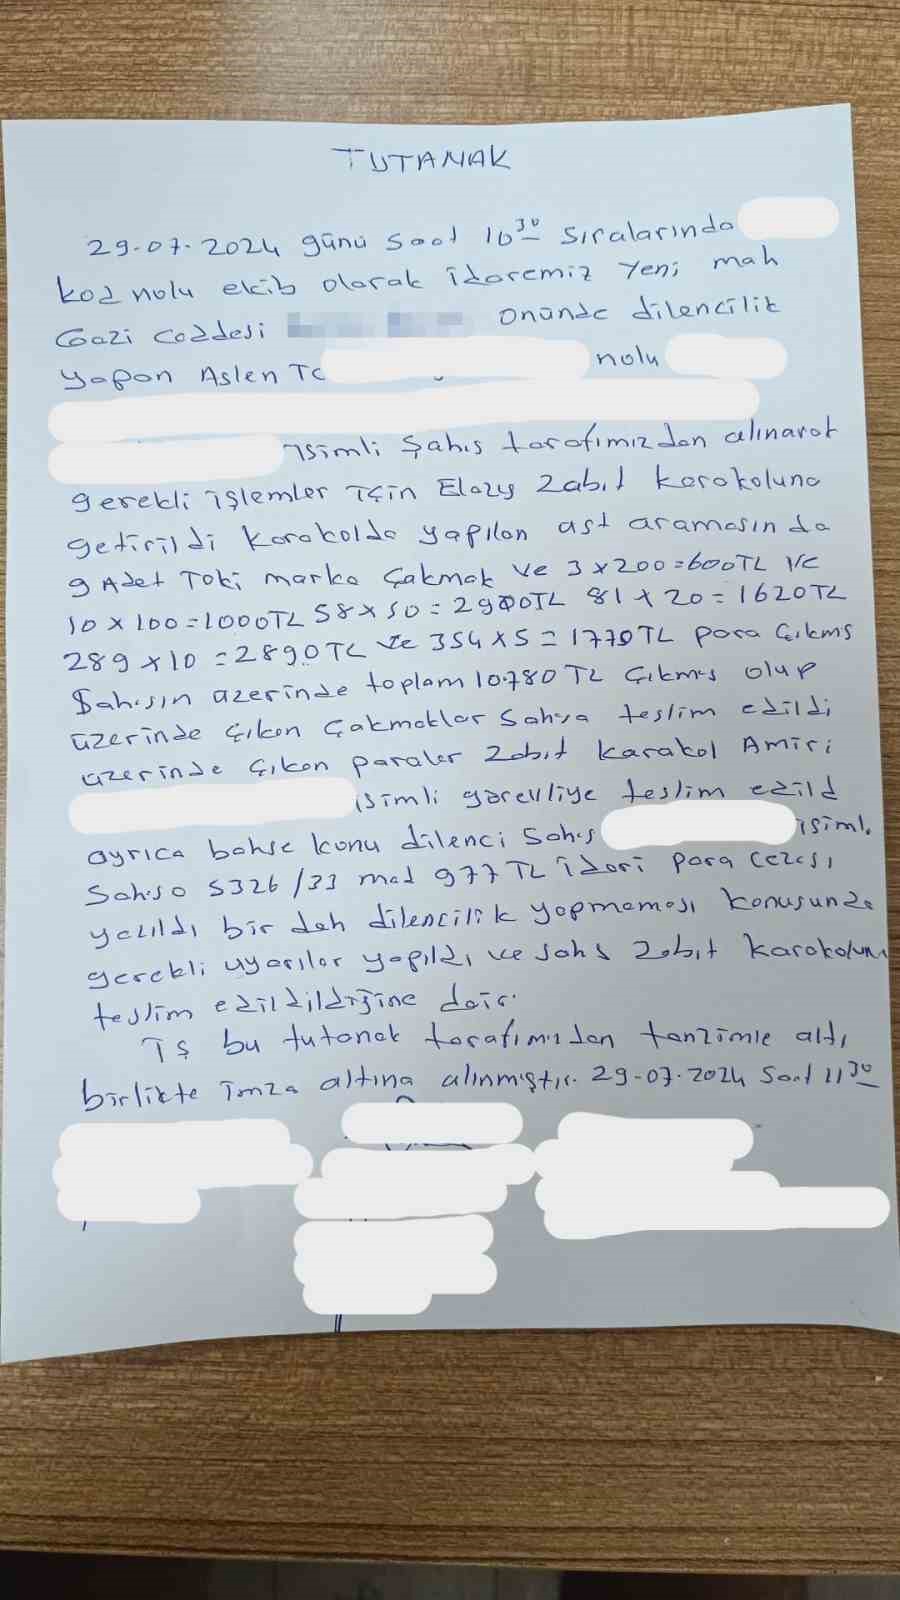 TUTANAK
29.07.2024 günü saat 10³⁰ sıralarında
kod nolu ekib olarak idaremiz Yeni mah
Gazi Caddesi önünde dilencilik
yapan Aslen TC nolu
isimli şahıs tarafımızdan alınarak
gerekli işlemler için Elazığ Zabıt karakoluna
getirildi karakolda yapılan üst aramasında
9 Adet Toki marka Çakmak ve 3x200=600TL ve
10x100=1000TL 58x50=2900TL 81x20=1620TL
289x10=2890TL ve 354x5=1770TL para çıkmış
Şahısın üzerinde toplam 10.780TL çıkmış olup
üzerinde çıkan çakmaklar şahsa teslim edildi
üzerinde çıkan paralar Zabıt karakol Amiri
isimli görevliye teslim edild
ayrıca bahse konu dilenci şahıs isimli
şahsa 5326/33 mad 977TL idari para cezası
yazıldı bir dah dilencilik yapmaması konusunda
gerekli uyarılar yapıldı ve şahs Zabıt karakoluna
teslim edildildiğine dair.
İş bu tutanak tarafımızdan tanzimle altı
birlikte imza altına alınmıştır. 29-07-2024 saat 11³⁰